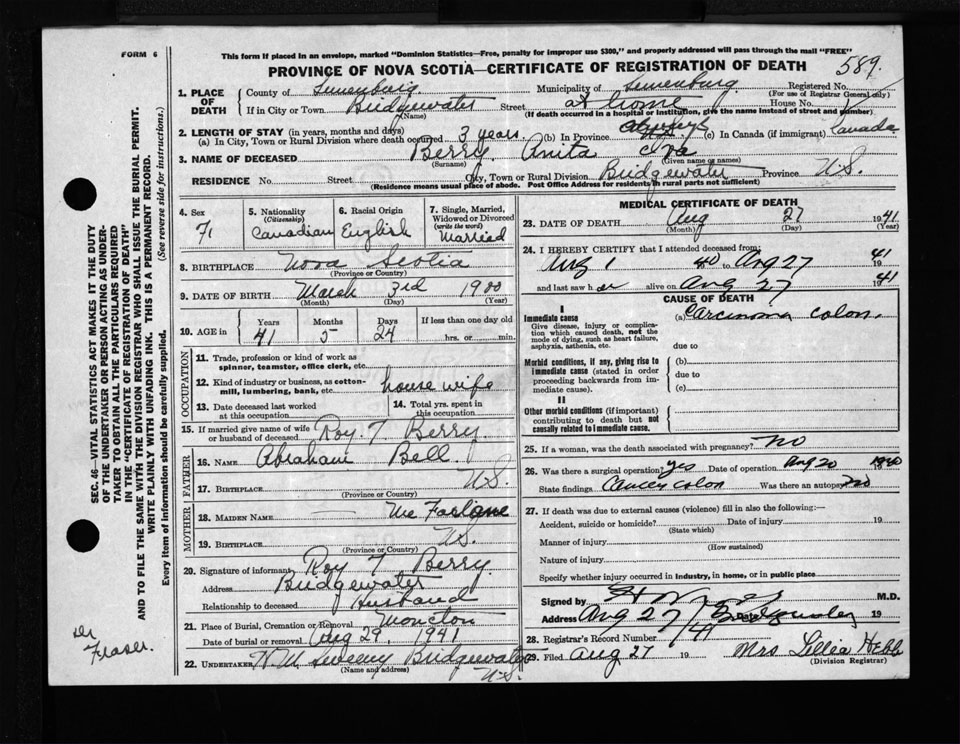 FORM 6
This form if placed in an envelope, marked "Dominion Statistics—Free, penalty for improper use $300," and properly addressed will pass through the mail "FREE"
PROVINCE OF NOVA SCOTIA—CERTIFICATE OF REGISTRATION OF DEATH
589.
1. PLACE OF DEATH
County of Lunenburg. Municipality of Lunenburg. Registered No.
(For use of Registrar General only)
If in City or Town Bridgewater Street at home House No.
(Name) (If death occurred in a hospital or institution, give the name instead of street and number)
2. LENGTH OF STAY (in years, months and days)
(a) In City, Town or Rural Division where death occurred 3 years. (b) In Province always (c) In Canada (if immigrant) Canada
3. NAME OF DECEASED Berry. Anita
(Surname) (Given name or names)
RESIDENCE No. Street City, Town or Rural Division Bridgewater Province N.S.
(Residence means usual place of abode. Post Office Address for residents in rural parts not sufficient)
4. Sex F.
5. Nationality (Citizenship) Canadian
6. Racial Origin English
7. Single, Married, Widowed or Divorced (write the word) Married
8. BIRTHPLACE Nova Scotia
(Province or Country)
9. DATE OF BIRTH March 3rd 1900
(Month) (Day) (Year)
10. AGE in Years Months Days If less than one day old
41 5 24 hrs. or min.
OCCUPATION
11. Trade, profession or kind of work as spinner, teamster, office clerk, etc.
12. Kind of industry or business, as cotton-mill, lumbering, bank, etc. house wife
13. Date deceased last worked at this occupation
14. Total yrs. spent in this occupation
15. If married give name of wife or husband of deceased Roy. T Berry.
FATHER
16. NAME Abraham Bell
17. BIRTHPLACE N.S.
(Province or Country)
MOTHER
18. MAIDEN NAME — Mc Farlane
19. BIRTHPLACE N.S.
(Province or Country)
20. Signature of informant Roy T Berry.
Address Bridgewater
Relationship to deceased Husband
21. Place of Burial, Cremation or Removal Moncton
Date of burial or removal Aug 29. 1941
22. UNDERTAKER Bridgewater
(Name and address) N.S.
MEDICAL CERTIFICATE OF DEATH
23. DATE OF DEATH Aug 27 1941
(Month) (Day) (Year)
24. I HEREBY CERTIFY that I attended deceased from:
Aug 1 40 to Aug 27 1941
and last saw her alive on Aug 27 1941
CAUSE OF DEATH
I
Immediate cause (a) Carcinoma colon.
Give disease, injury or complication which caused death, not the mode of dying, such as heart failure, asphyxia, asthenia, etc.
due to
Morbid conditions, if any, giving rise to immediate cause (stated in order proceeding backwards from immediate cause).
(b)
due to
(c)
II
Other morbid conditions (if important) contributing to death but not causally related to immediate cause.
25. If a woman, was the death associated with pregnancy? No
26. Was there a surgical operation? yes Date of operation Aug 20 1940
State findings Cancer colon Was there an autopsy? no
27. If death was due to external causes (violence) fill in also the following:—
Accident, suicide or homicide? Date of injury 19
(State which)
Manner of injury
(How sustained)
Nature of injury
Specify whether injury occurred in industry, in home, or in public place
Signed by M.D.
Address Aug 27 / Bridgewater 19
28. Registrar's Record Number 141
29. Filed Aug 27 19 Mrs Lillia Hebb
(Division Registrar)
SEC. 46—VITAL STATISTICS ACT MAKES IT THE DUTY
OF THE UNDERTAKER OR PERSON ACTING AS UNDERTAKER
TO OBTAIN ALL THE PARTICULARS REQUIRED
IN THE "CERTIFICATE OF REGISTRATION OF DEATH"
AND TO FILE THE SAME WITH THE DIVISION REGISTRAR WHO SHALL ISSUE THE BURIAL PERMIT.
WRITE PLAINLY WITH UNFADING INK. THIS IS A PERMANENT RECORD.
Every item of information should be carefully supplied. (See reverse side for instructions.)
Dr
Fraser.